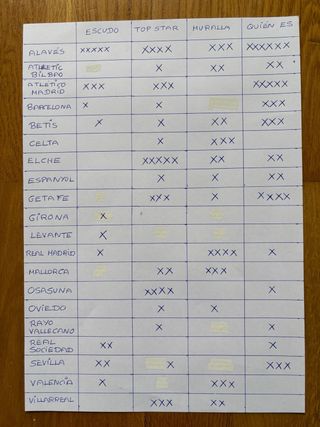 ESCUDO TOP STAR MURALLA QUIÉN ES
ALAVÉS XXXXX XXXX XXX XXXXXX
ATHLETIC BILBAO X XX XX
ATLETICO MADRID XXX XXX XXXXX
BARCELONA X X XXX
BETIS X X XX XXX
CELTA X XXX
ELCHE XXXXX XX XX
ESPANYOL X X XX
GETAFE XXX X XXXX
GIRONA X
LEVANTE X
REAL MADRID X XXXX X
MALLORCA XX XXX
OSASUNA XXXX X
OVIEDO X X
RAYO VALLECANO X X
REAL SOCIEDAD XX X
SEVILLA XX X XXX
VALENCIA X XXX
VILLARREAL XXX XX